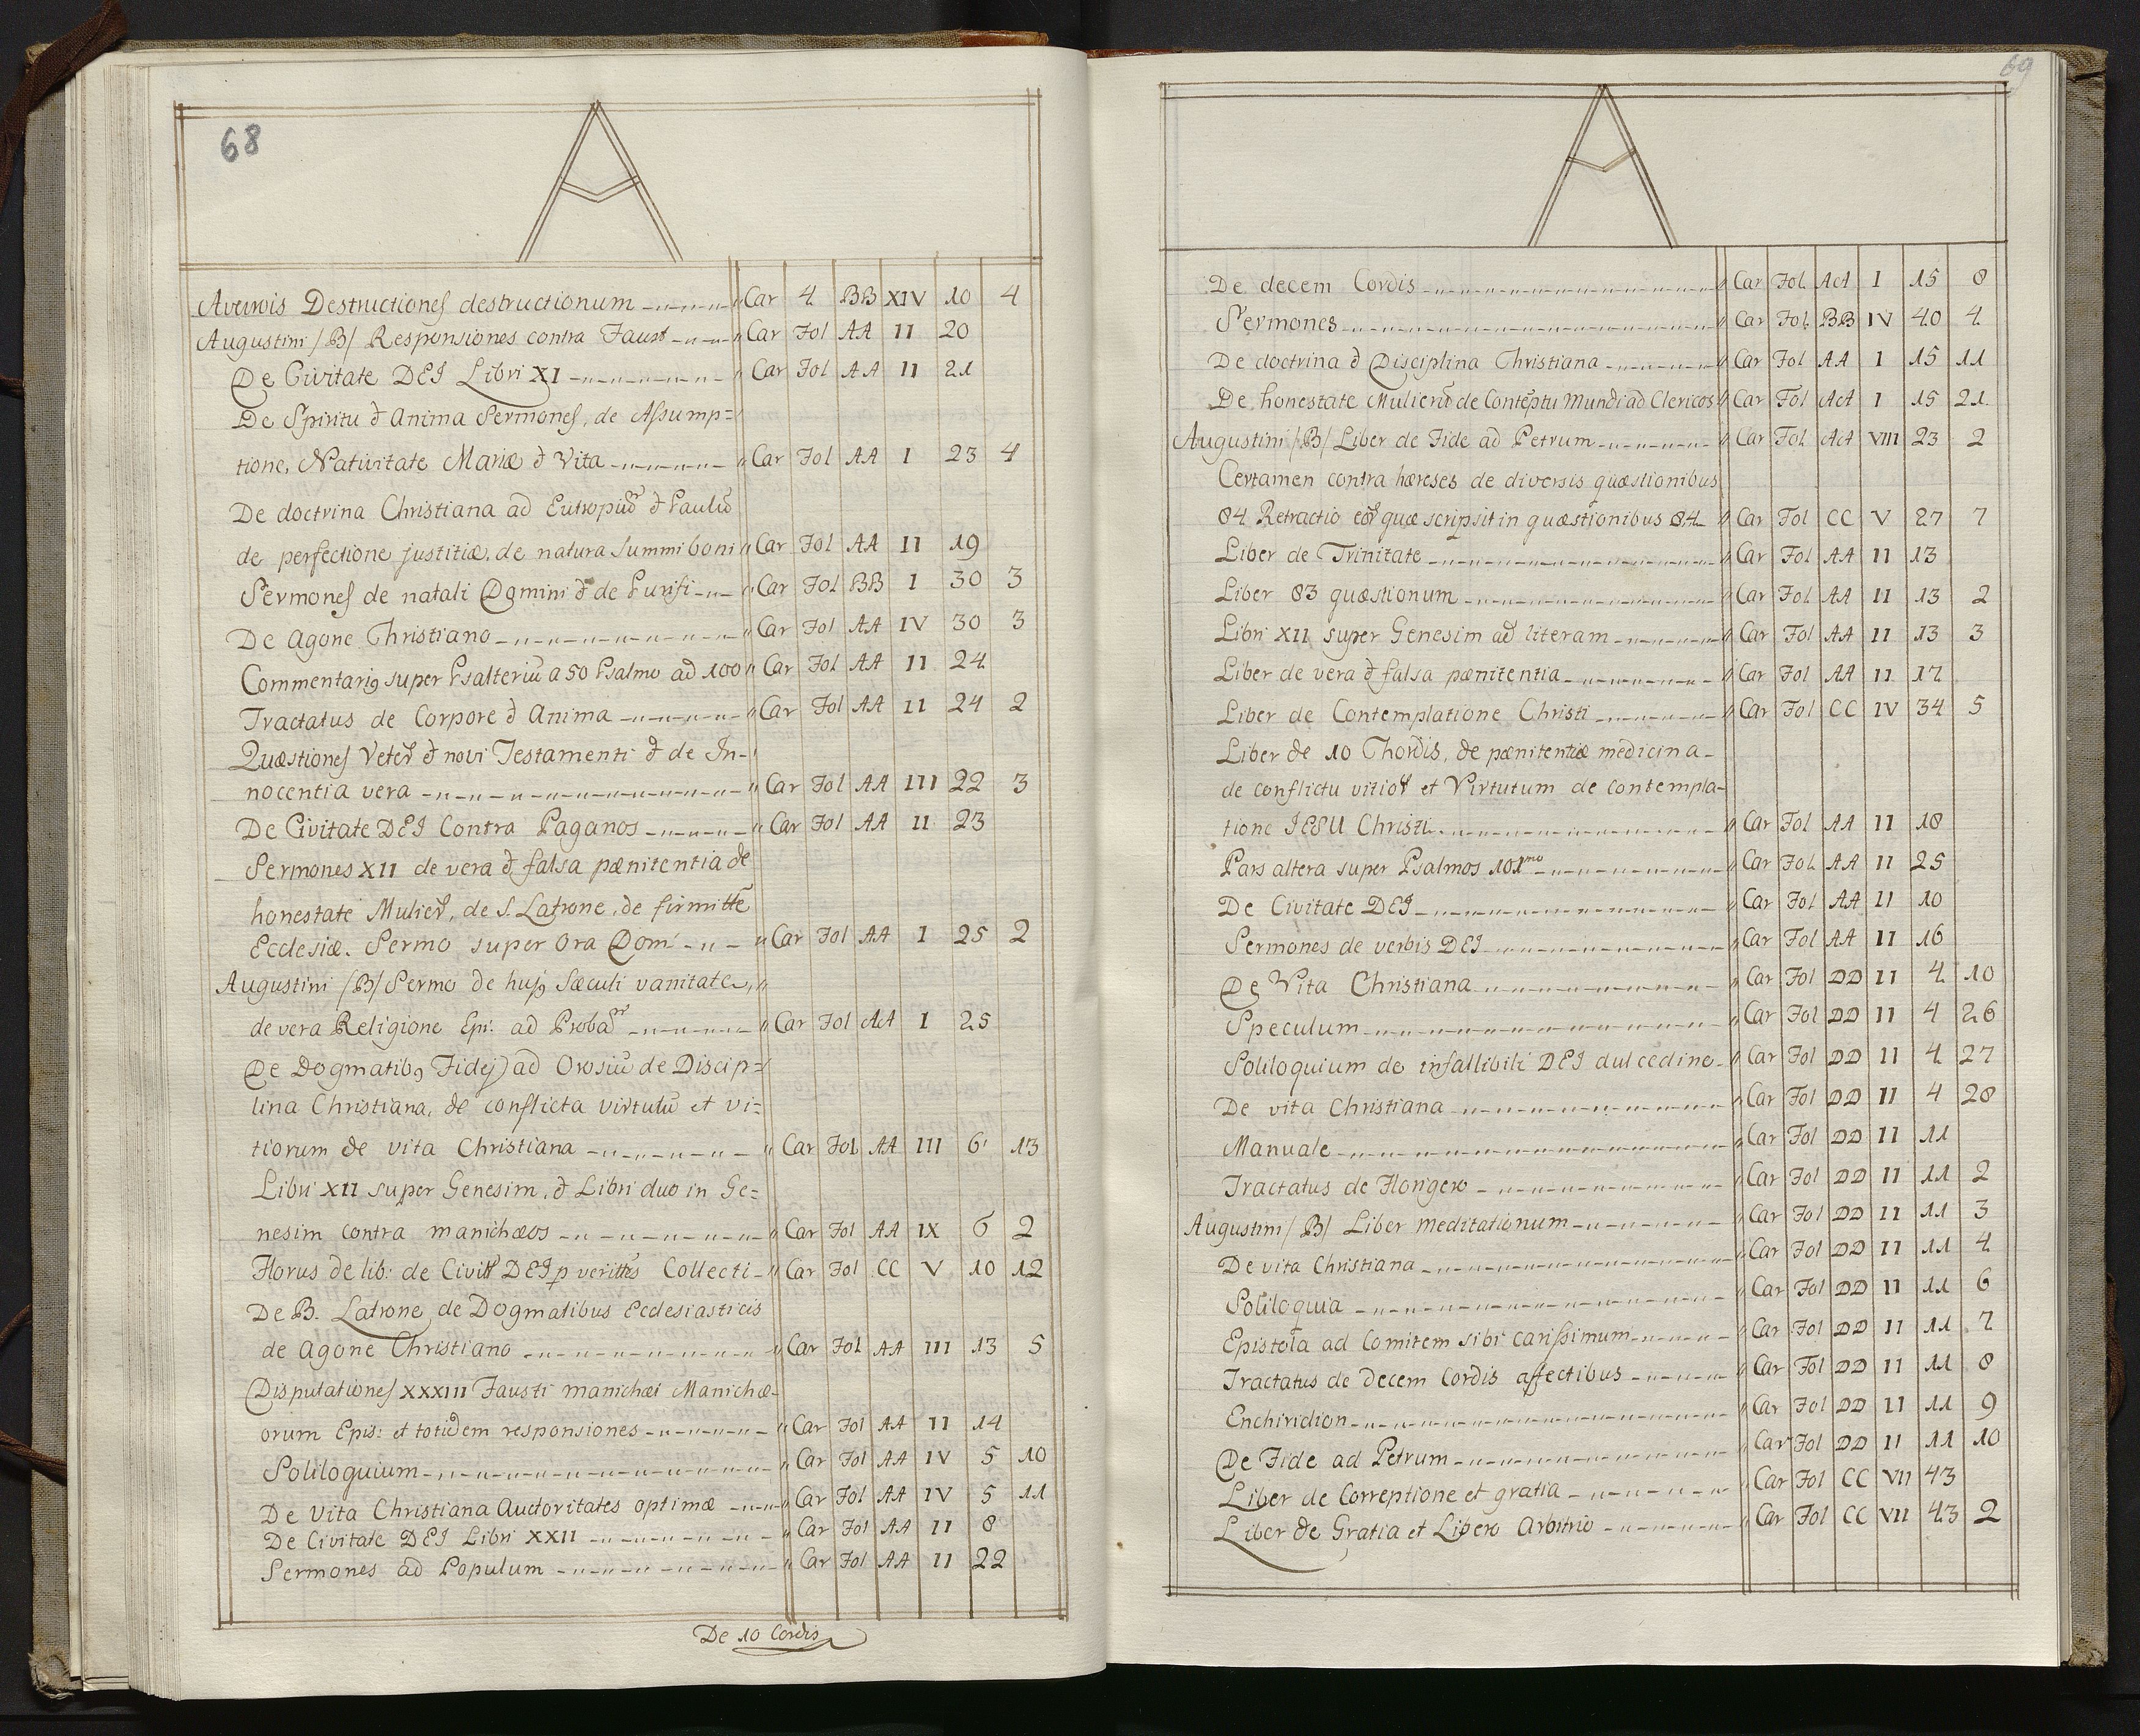 68
A
Averrois Destructiones destructionum " Car 4 BB XIV 10 4
Augustini /B/ Responsiones contra Faust " Car Fol AA II 20
De Civitate DEI Libri XI " Car Fol AA II 21
De Spiritu & Anima Sermones, de Assump=
tione, Nativitate Mariæ & Vita " Car Fol AA I 23 4
De doctrina Christiana ad Eutropiū & Paulū
de perfectione justitiæ, de natura summi boni " Car Fol AA II 19
Sermones de natali Domini & de Purifi " Car Fol BB I 30 3
De Agone Christiano " Car Fol AA IV 30 3
Commentariꝯ super Psalteriū a 50 Psalmo ad 100 " Car Fol AA II 24
Tractatus de Corpore & Anima " Car Fol AA II 24 2
Quæstiones Veterꝭ & novi Testamenti & de In-
nocentia vera " Car Fol AA III 22 3
De Civitate DEI Contra Paganos " Car Fol AA II 23
Sermones XII de vera & falsa pænitentia de
honestate Mulierꝭ, de S. Latrone, de firmitte
Ecclesiæ. Sermo super Ora Dom " Car Fol AA I 25 2
Augustini /B/ Sermo de hujꝯ Sæculi vanitate, "
de vera Religione Epi: ad Proba " Car Fol AA I 25
De Dogmatibꝯ Fidej ad Orosiū de Discip=
lina Christiana, de conflicta virtutū et vi=
tiorum de vita Christiana " Car Fol AA III 6 13
Libri XII super Genesim, & Libri duo in Ge=
nesim contra manichæos " Car Fol AA IX 6 2
Florus de lib: de Civitt DEI p verittes Collecti " Car Fol CC V 10 12
De B. Latrone, de Dogmatibus Ecclesiasticis
de Agone Christiano " Car Fol AA III 13 5
Disputationes XXXIII Fausti manichæi Manichæ-
orum Epis: et totidem responsiones " Car Fol AA II 14
Soliloquium " Car Fol AA IV 5 10
De Vita Christiana Auctoritates optimæ " Car Fol AA IV 5 11
De Civitate DEI Libri XXII " Car Fol AA II 8
Sermones ad Populum " Car Fol AA II 22
De 10 Cordis
69
A
De decem Cordis " Car Fol AA I 15 8
Sermones " Car Fol BB IV 40 4
De doctrina & Disciplina Christiana " Car Fol AA I 15 11
De honestate Mulierū de Contēptu Mundi ad Clericos " Car Fol AA I 15 21
Augustini /B/ Liber de Fide ad Petrum " Car Fol AA VIII 23 2
Certamen contra hæreses de diversis quæstionibus
84 Retractio eorꝭ quæ scripsit in quæstionibus 84 " Car Fol CC V 27 7
Liber de Trinitate " Car Fol AA II 13
Liber 83 quæstionum " Car Fol AA II 13 2
Libri XII super Genesim ad literam " Car Fol AA II 13 3
Liber de vera & falsa pænitentia " Car Fol AA II 17
Liber de Contemplatione Christi " Car Fol CC IV 34 5
Liber de 10 Chordis, de pænitentiæ medicina
de conflictu vitiorꝭ et Virtutum de contempla-
tione IESU Christi " Car Fol AA II 18
Pars altera super Psalmos 101mo " Car Fol AA II 25
De Civitate DEI " Car Fol AA II 10
Sermones de verbis DEI " Car Fol AA II 16
De Vita Christiana " Car Fol DD II 4 10
Speculum " Car Fol DD II 4 26
Soliloquium de infallibili DEI dulcedine " Car Fol DD II 4 27
De vita Christiana " Car Fol DD II 4 28
Manuale " Car Fol DD II 11
Tractatus de Hongero " Car Fol DD II 11 2
Augustini /B/ Liber meditationum " Car Fol DD II 11 3
De vita Christiana " Car Fol DD II 11 4
Soliloquia " Car Fol DD II 11 6
Epistola ad Comitem sibi carissimum " Car Fol DD II 11 7
Tractatus de Decem Cordis affectibus " Car Fol DD II 11 8
Enchiridion " Car Fol DD II 11 9
De Fide ad Petrum " Car Fol DD II 11 10
Liber de Correptione et gratia " Car Fol CC VII 43
Liber de Gratia et Libero Arbitrio " Car Fol CC VII 43 2